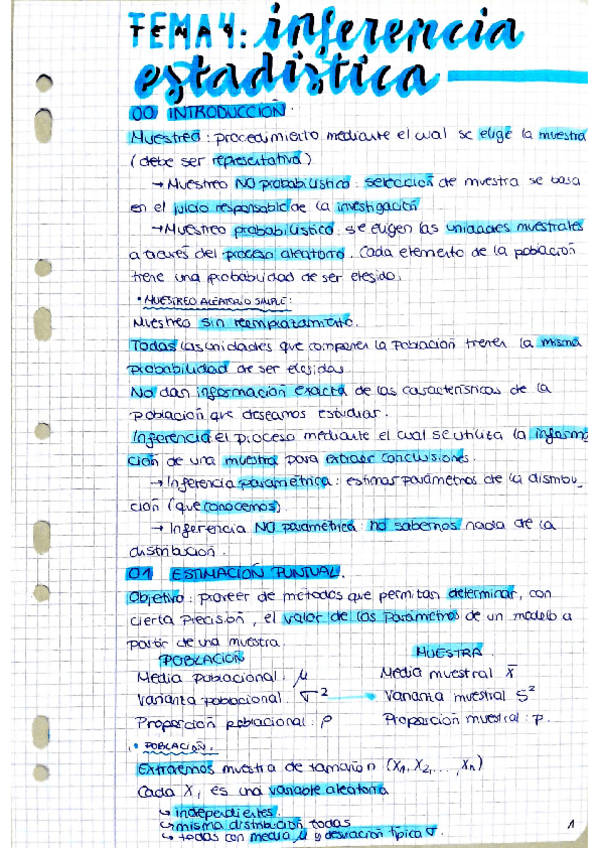 TEMA 4: inferencia
estadística
00 INTRODUCCIÓN.
Muestreo: procedimiento mediante el cual se elige la muestra
(debe ser representativa)
→ Muestreo NO probabilístico: selección de muestra se basa
en el juicio responsable de la investigación
→ Muestreo probabilístico: se eligen las unidades muestrales
a través del proceso aleatorio. Cada elemento de la población
tiene una probabilidad de ser elegido.
• MUESTREO ALEATORIO SIMPLE:
Muestreo sin reemplazamiento.
Todas las unidades que componen la población tienen la misma
probabilidad de ser elegidas
No dan información exacta de las características de la
población que deseamos estudiar.
Inferencia el proceso mediante el cual se utiliza la informa
ción de una muestra para extraer conclusiones.
→ Inferencia paramétrica: estimar parámetros de la distribu_
ción (que conocemos)
→ Inferencia NO paramétrica: no sabemos nada de la
distribución.
01 ESTIMACIÓN PUNTUAL.
Objetivo: proveer de métodos que permitan determinar, con
cierta precisión, el valor de los parámetros de un modelo a
partir de una muestra.
POBLACIÓN MUESTRA.
Media poblacional: μ Media muestral x̄
Varianza poblacional: σ² → Varianza muestral S²
Proporción poblacional: ρ Proporción muestral: p.
• POBLACIÓN.
Extraemos muestra de tamaño n (X₁, X₂, ..., Xₙ)
Cada X, es una variable aleatoria
↳ independientes.
↳ misma distribución todas
↳ todas con media μ y desviación típica σ.
1